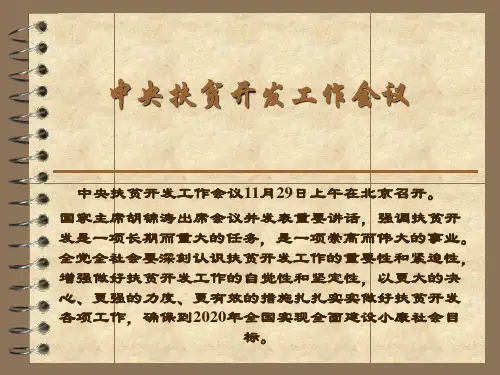 中央扶贫开发工作会议
中央扶贫开发工作会议11月29日上午在北京召开。
国家主席胡锦涛出席会议并发表重要讲话，强调扶贫开
发是一项长期而重大的任务，是一项崇高而伟大的事业。
全党全社会要深刻认识扶贫开发工作的重要性和紧迫性，
增强做好扶贫开发工作的自觉性和坚定性，以更大的决
心、更强的力度、更有效的措施扎扎实实做好扶贫开发
各项工作，确保到2020年全国实现全面建设小康社会目
标。